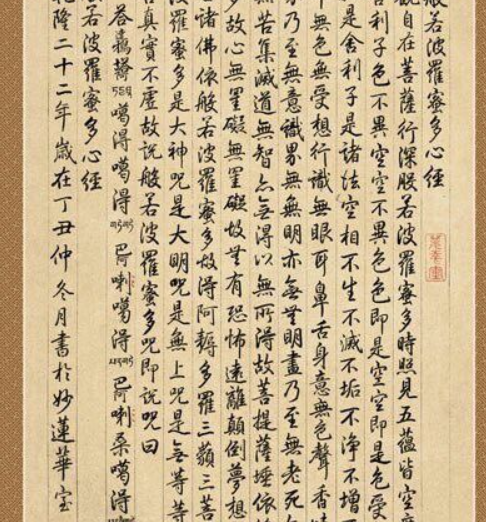 般若波羅蜜多心經
觀自在菩薩行深般若波羅蜜多時照見五蘊皆空
舍利子色不異空空不異色色即是空空即是色受
是舍利子是諸法空相不生不滅不垢不淨不增
中無色無受想行識無眼耳鼻舌身意無色聲香
界乃至無意識界無無明亦無無明盡乃至無老死
無苦集滅道無智亦無得以無所得故菩提薩埵依
多故心無罣礙無罣礙故無有恐怖遠離顛倒夢想
世諸佛依般若波羅蜜多故得阿耨多羅三藐三菩
波羅蜜多是大神咒是大明咒是無上咒是無等等
真實不虛故說般若波羅蜜多咒即說咒曰
噶得噶得 喇噶得 喇桑噶得
若波羅蜜多心經
隆二十二年歲在丁丑仲冬月書於妙蓮華室